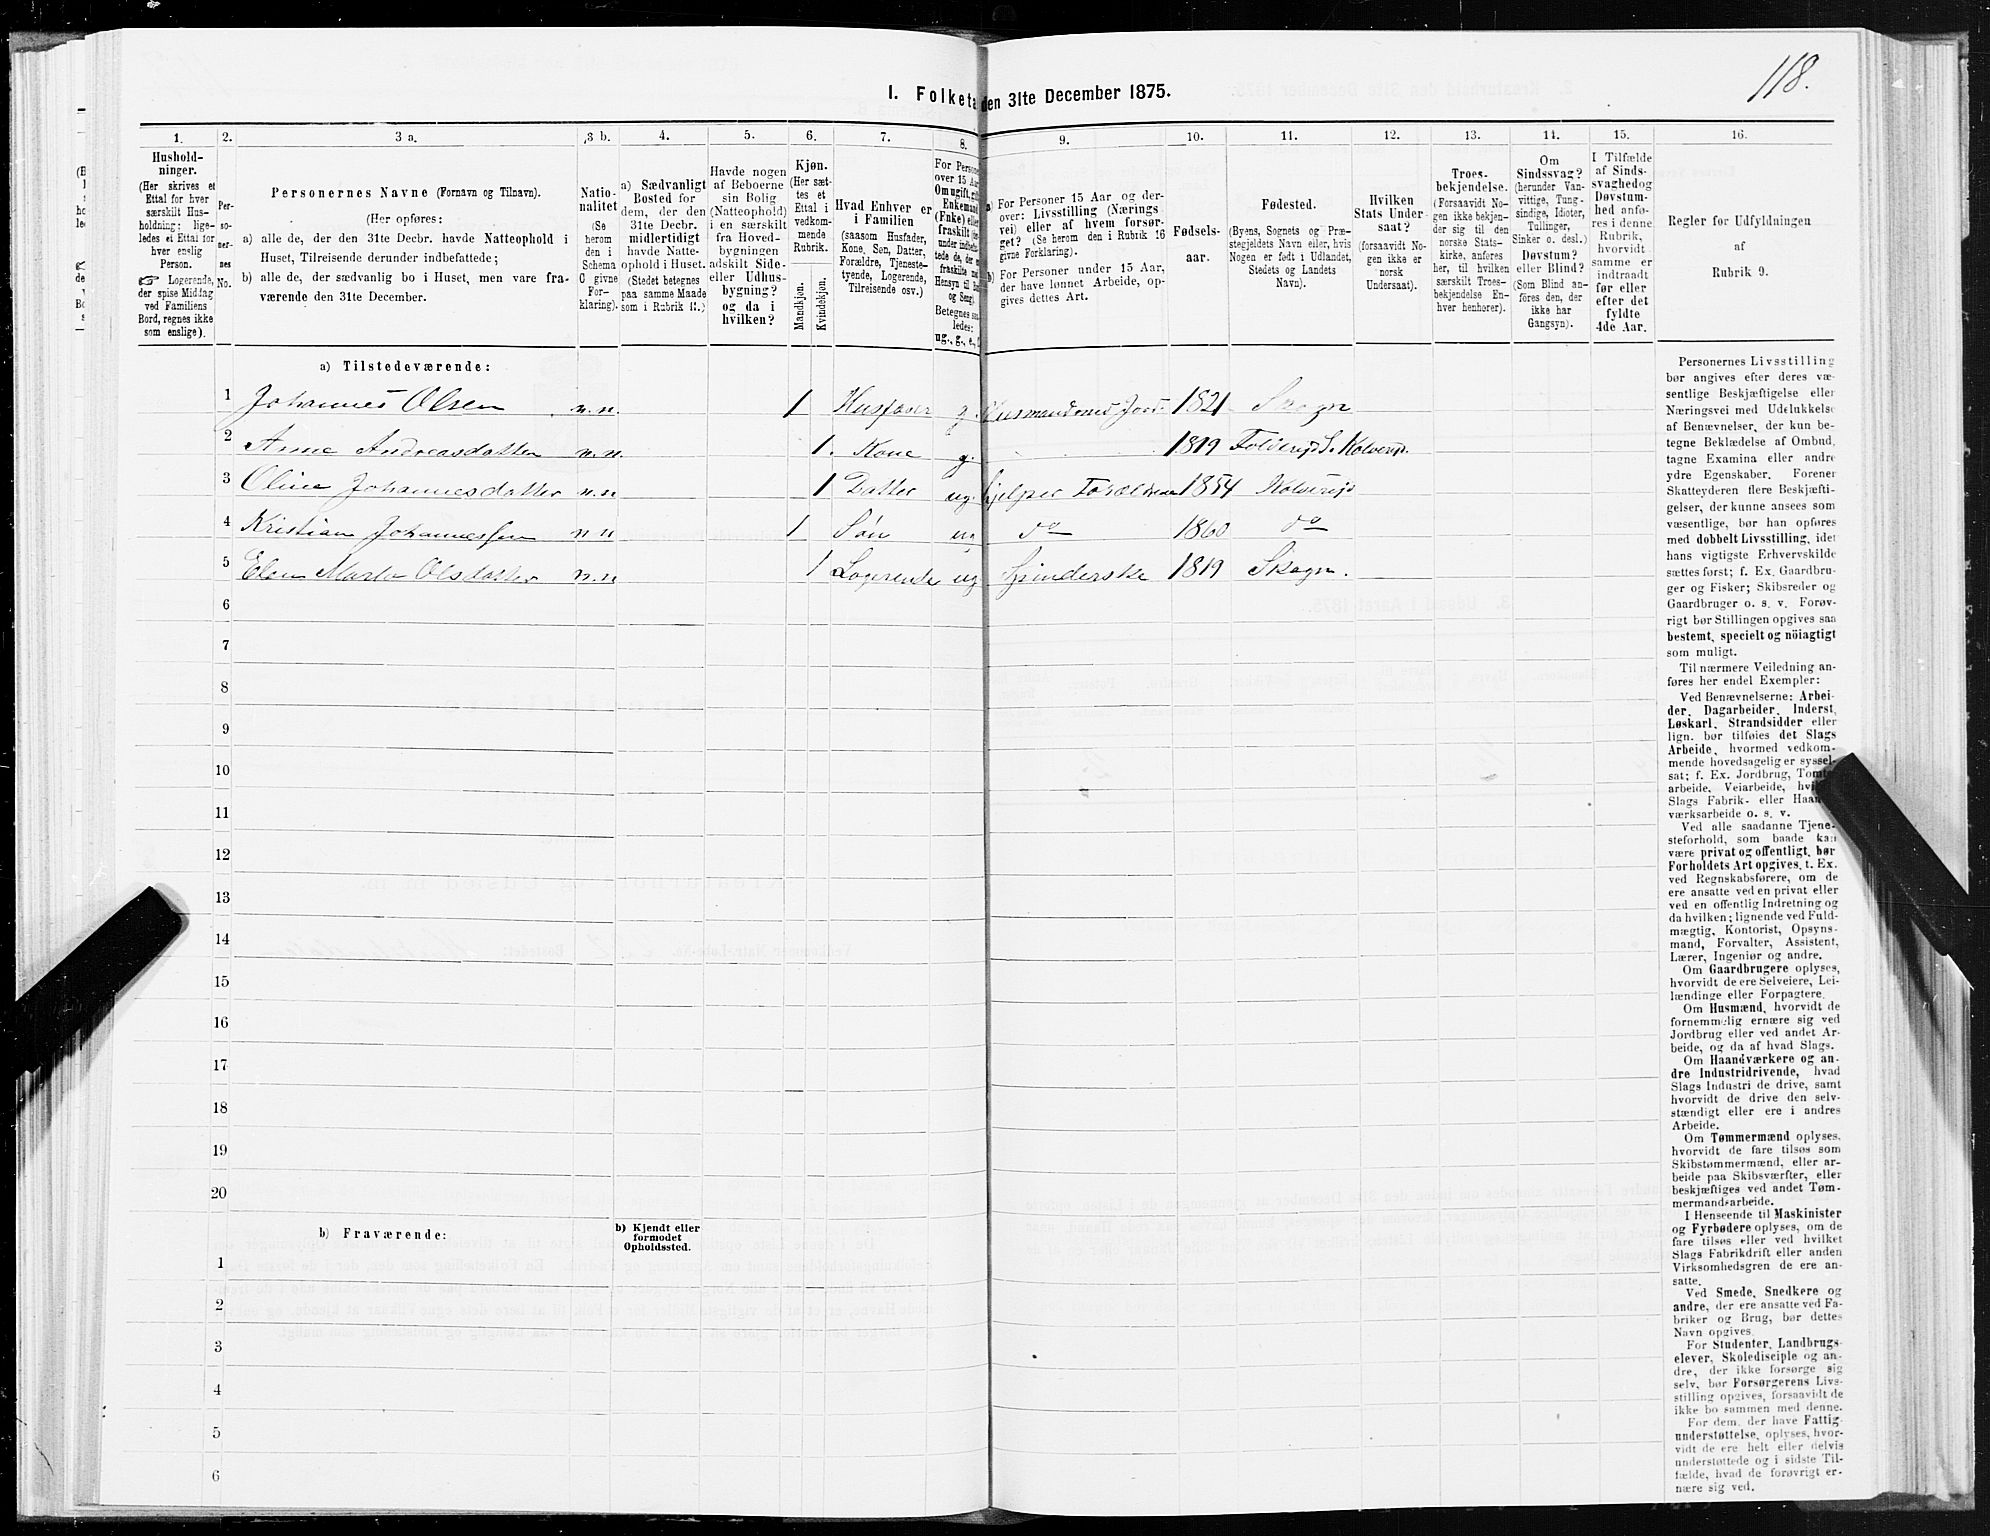 118.
I. Folketa den 31te December 1875.
1. 2. 3 a. 3 b. 4. 5. 6. 7. 8. 9. 10. 11. 12. 13. 14. 15. 16.
Hushold-
ninger.
(Her skrives et
Ettal for hver
særskilt Hus-
holdning; lige-
ledes et Ettal for
hver enslig
Person.
☞ Logerende,
der spise Middag
ved Familiens
Bord, regnes ikke
som enslige).
Per-
so-
ner-
nes
No.
Personernes Navne (Fornavn og Tilnavn).
(Her opføres:
a) alle de, der den 31te Decbr. havde Natteophold i
Huset, Tilreisende derunder indbefattede;
b) alle de, der sædvanlig bo i Huset, men vare fra-
værende den 31te December.
Natio-
nalitet
(Se
herom
den i
Schema
C givne
For-
klaring).
a) Sædvanligt
Bosted for
dem, der den
31te Decbr.
midlertidigt
havde Natte-
ophold i Huset.
(Stedet betegnes
paa samme Maade
som i Rubrik 11.)
Havde nogen
af Beboerne
sin Bolig
(Natteophold)
i en særskilt
fra Hoved-
bygningen
adskilt Side-
eller Udhus-
bygning?
og da i
hvilken?
Kjøn.
(Her sæt-
tes et
Ettal i
vedkom-
mende
Rubrik.
Mandkjøn.
Kvindekjøn.
Hvad Enhver er
i Familien
(saasom Husfader,
Kone, Søn, Datter,
Forældre, Tjeneste-
tyende, Logerende,
Tilreisende osv.)
For Persone
over 15 Aar
Om ugift, gift
Enkemand
(Enke) eller
fraskilt
Betegnes saa-
ledes:
ug., g., e.,
a) For Personer 15 Aar og der-
over: Livsstilling (Nærings
vei) eller af hvem forsør-
get? (Se herom den i Rubrik 16
givne Forklaring).
b) For Personer under 15 Aar,
der have lønnet Arbeide, op-
gives dettes Art.
Fødsels-
aar.
Fødested.
(Byens, Sognets og Præ-
stegjeldets Navn eller, hvis
Nogen er født i Udlandet,
Stedets og Landets
Navn).
Hvilken
Stats Under-
saat?
(forsaavidt No-
gen ikke er
norsk
Undersaat).
Troes-
bekjendelse.
(Forsaavidt No-
gen ikke bekjen-
der sig til den
norske Stats-
kirke, anføres
her, til hvilken
særskilt Troes-
bekjendelse En-
hver henhører).
Om
Sindssvag?
(herunder Van-
vittige, Tung-
sindige, Idioter,
Tullinger,
Sinker o. desl.)
Døvstum?
eller Blind?
(Som Blind an-
føres den, der
ikke har
Gangsyn).
I Tilfælde
af Sinds-
svaghed og
Døvstum-
hed anfø-
res i denne
Rubrik,
hvorvidt
samme er
indtraadt
før eller
efter det
fyldte
4de Aar.
Regler for Udfyldningen
af
Rubrik 9.
a) Tilstedeværende:
1 Johannes Olsen n.n. 1 Husfader g Husmand med Jord 1821 Skogn
2 Anne Andreasdatter n.n. 1. Kone g. 1819 Folderejd S. Kolverejd.
3 Oline Johannesdatter n.n 1 Datter ug. hjelper Forældrene 1854 Kolverejd
4 Kristian Johannessen n n 1 Søn ug do 1860 do
5 Elen Marta Olsdatter n.n 1 Logerende ug Spinderske 1819 Skogn.
6
7
8
9
10
11
12
13
14
15
16
17
18
19
20
b) Fraværende:
b) Kjendt eller
formodet
Opholdssted.
1
2
3
4
5
6
Personernes Livsstilling
bør angives efter deres væ-
sentlige Beskjæftigelse eller
Næringsvei med Udelukkelse
af Benævnelser, der kun be-
tegne Beklædelse af Ombud,
tagne Examina eller andre
ydre Egenskaber. Forener
Skatteyderen flere Beskjæfti-
gelser, der kunne ansees som
væsentlige, bør han opføres
med dobbelt Livsstilling, idet
hans vigtigste Erhvervskilde
sættes først; f. Ex. Gaardbru-
ger og Fisker; Skibsreder og
Gaardbruger o. s. v. Forøv-
rigt bør Stillingen opgives saa
bestemt, specielt og nöiagtigt
som muligt.
Til nærmere Veiledning an-
føres her endel Exempler:
Ved Benævnelserne: Arbei-
der, Dagarbeider, Inderst,
Løskarl, Strandsidder eller
lign. bør tilføies det Slags
Arbeide, hvormed vedkom-
mende hovedsagelig er syssel-
sat; f. Ex. Jordbrug, Tomte-
arbeide, Veiarbeide, hvilket
Slags Fabrik- eller Haand-
værksarbeide o. s. v.
Ved alle saadanne Tjene-
steforhold, som baade kan
være privat og offentligt, bør
Forholdets Art opgives, t. Ex.
ved Regnskabsførere, om de
ere ansatte ved en privat eller
ved en offentlig Indretning og
da hvilken; lignende ved Fuld-
mægtig, Kontorist, Opsyns-
mand, Forvalter, Assistent,
Lærer, Ingeniør og andre.
Om Gaardbrugere oplyses,
hvorvidt de ere Selveiere, Lei-
lændinge eller Forpagtere.
Om Husmænd, hvorvidt de
fornemmelig ernære sig ved
Jordbrug eller ved andet Ar-
beide, og da af hvad Slags.
Om Haandværkere og an-
dre Industridrivende, hvad
Slags Industri de drive, samt
hvorvidt de drive den selv-
stændigt eller ere i andres
Arbeide.
Om Tømmermænd oplyses,
hvorvidt de fare tilsøs som
Skibstømmermænd, eller ar-
beide paa Skibsværfter, eller
beskjæftiges ved andet Tøm-
mermandsarbeide.
I Henseende til Maskinister
og Fyrbødere oplyses, om de
fare tilsøs eller ved hvilket
Slags Fabrikdrift eller anden
Virksomhedsgren de ere an-
satte.
Ved Smede, Snedkere og
andre, der ere ansatte ved Fa-
briker og Brug, bør dettes
Navn opgives.
For Studenter, Landbrugs-
elever, Skoledisciple og an-
dre, der ikke forsørge sig
selv, bør Forsørgerens Livs-
stilling opgives, forsaavidt de
ikke bo sammen med denne.
For dem, der have Fattig-
understøttelse, oplyses, hvor-
vidt de ere helt eller delvis
understøttede og i sidste Til-
fælde, hvad de forøvrigt er-
nære sig ved.